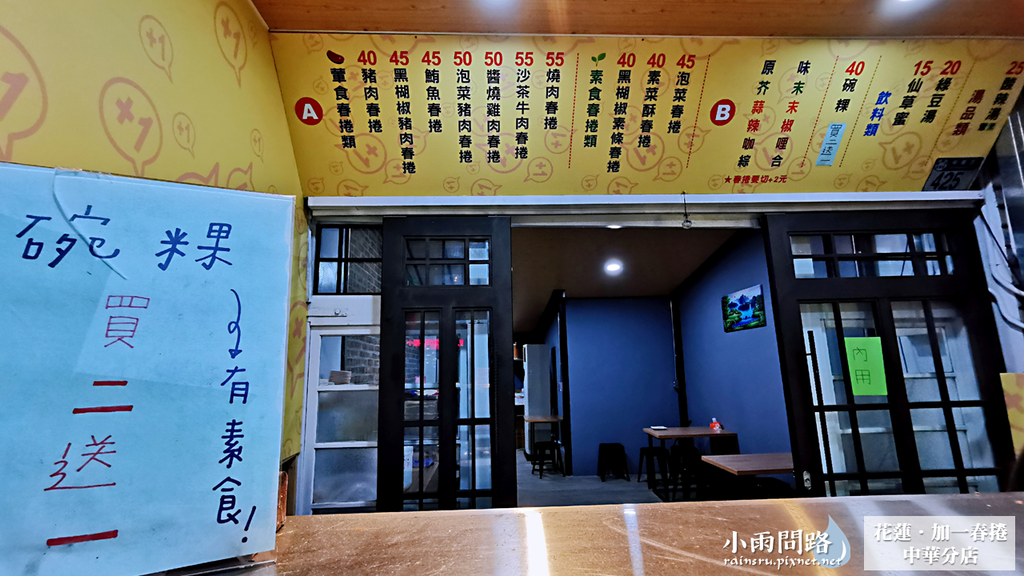 A
葷食春捲類
40 豬肉春捲
45 黑糊椒豬肉春捲
45 鮪魚春捲
50 泡菜豬肉春捲
50 醬燒雞肉春捲
55 沙茶牛肉春捲
55 燒肉春捲
素食春捲類
40 黑糊椒素條春捲
40 素菜酥春捲
45 泡菜春捲
B
原味
芥末
蒜末
辣椒
咖哩
綜合
★春捲要切+2元
40 碗粿
買二送一
飲料類
15 仙草蜜
20 綠豆湯
湯品類
25 酸辣湯
425
碗粿
買二送一
有素食!
內用
小雨問路
rainsru.pixnet.net
花蓮·加一春捲
中華分店